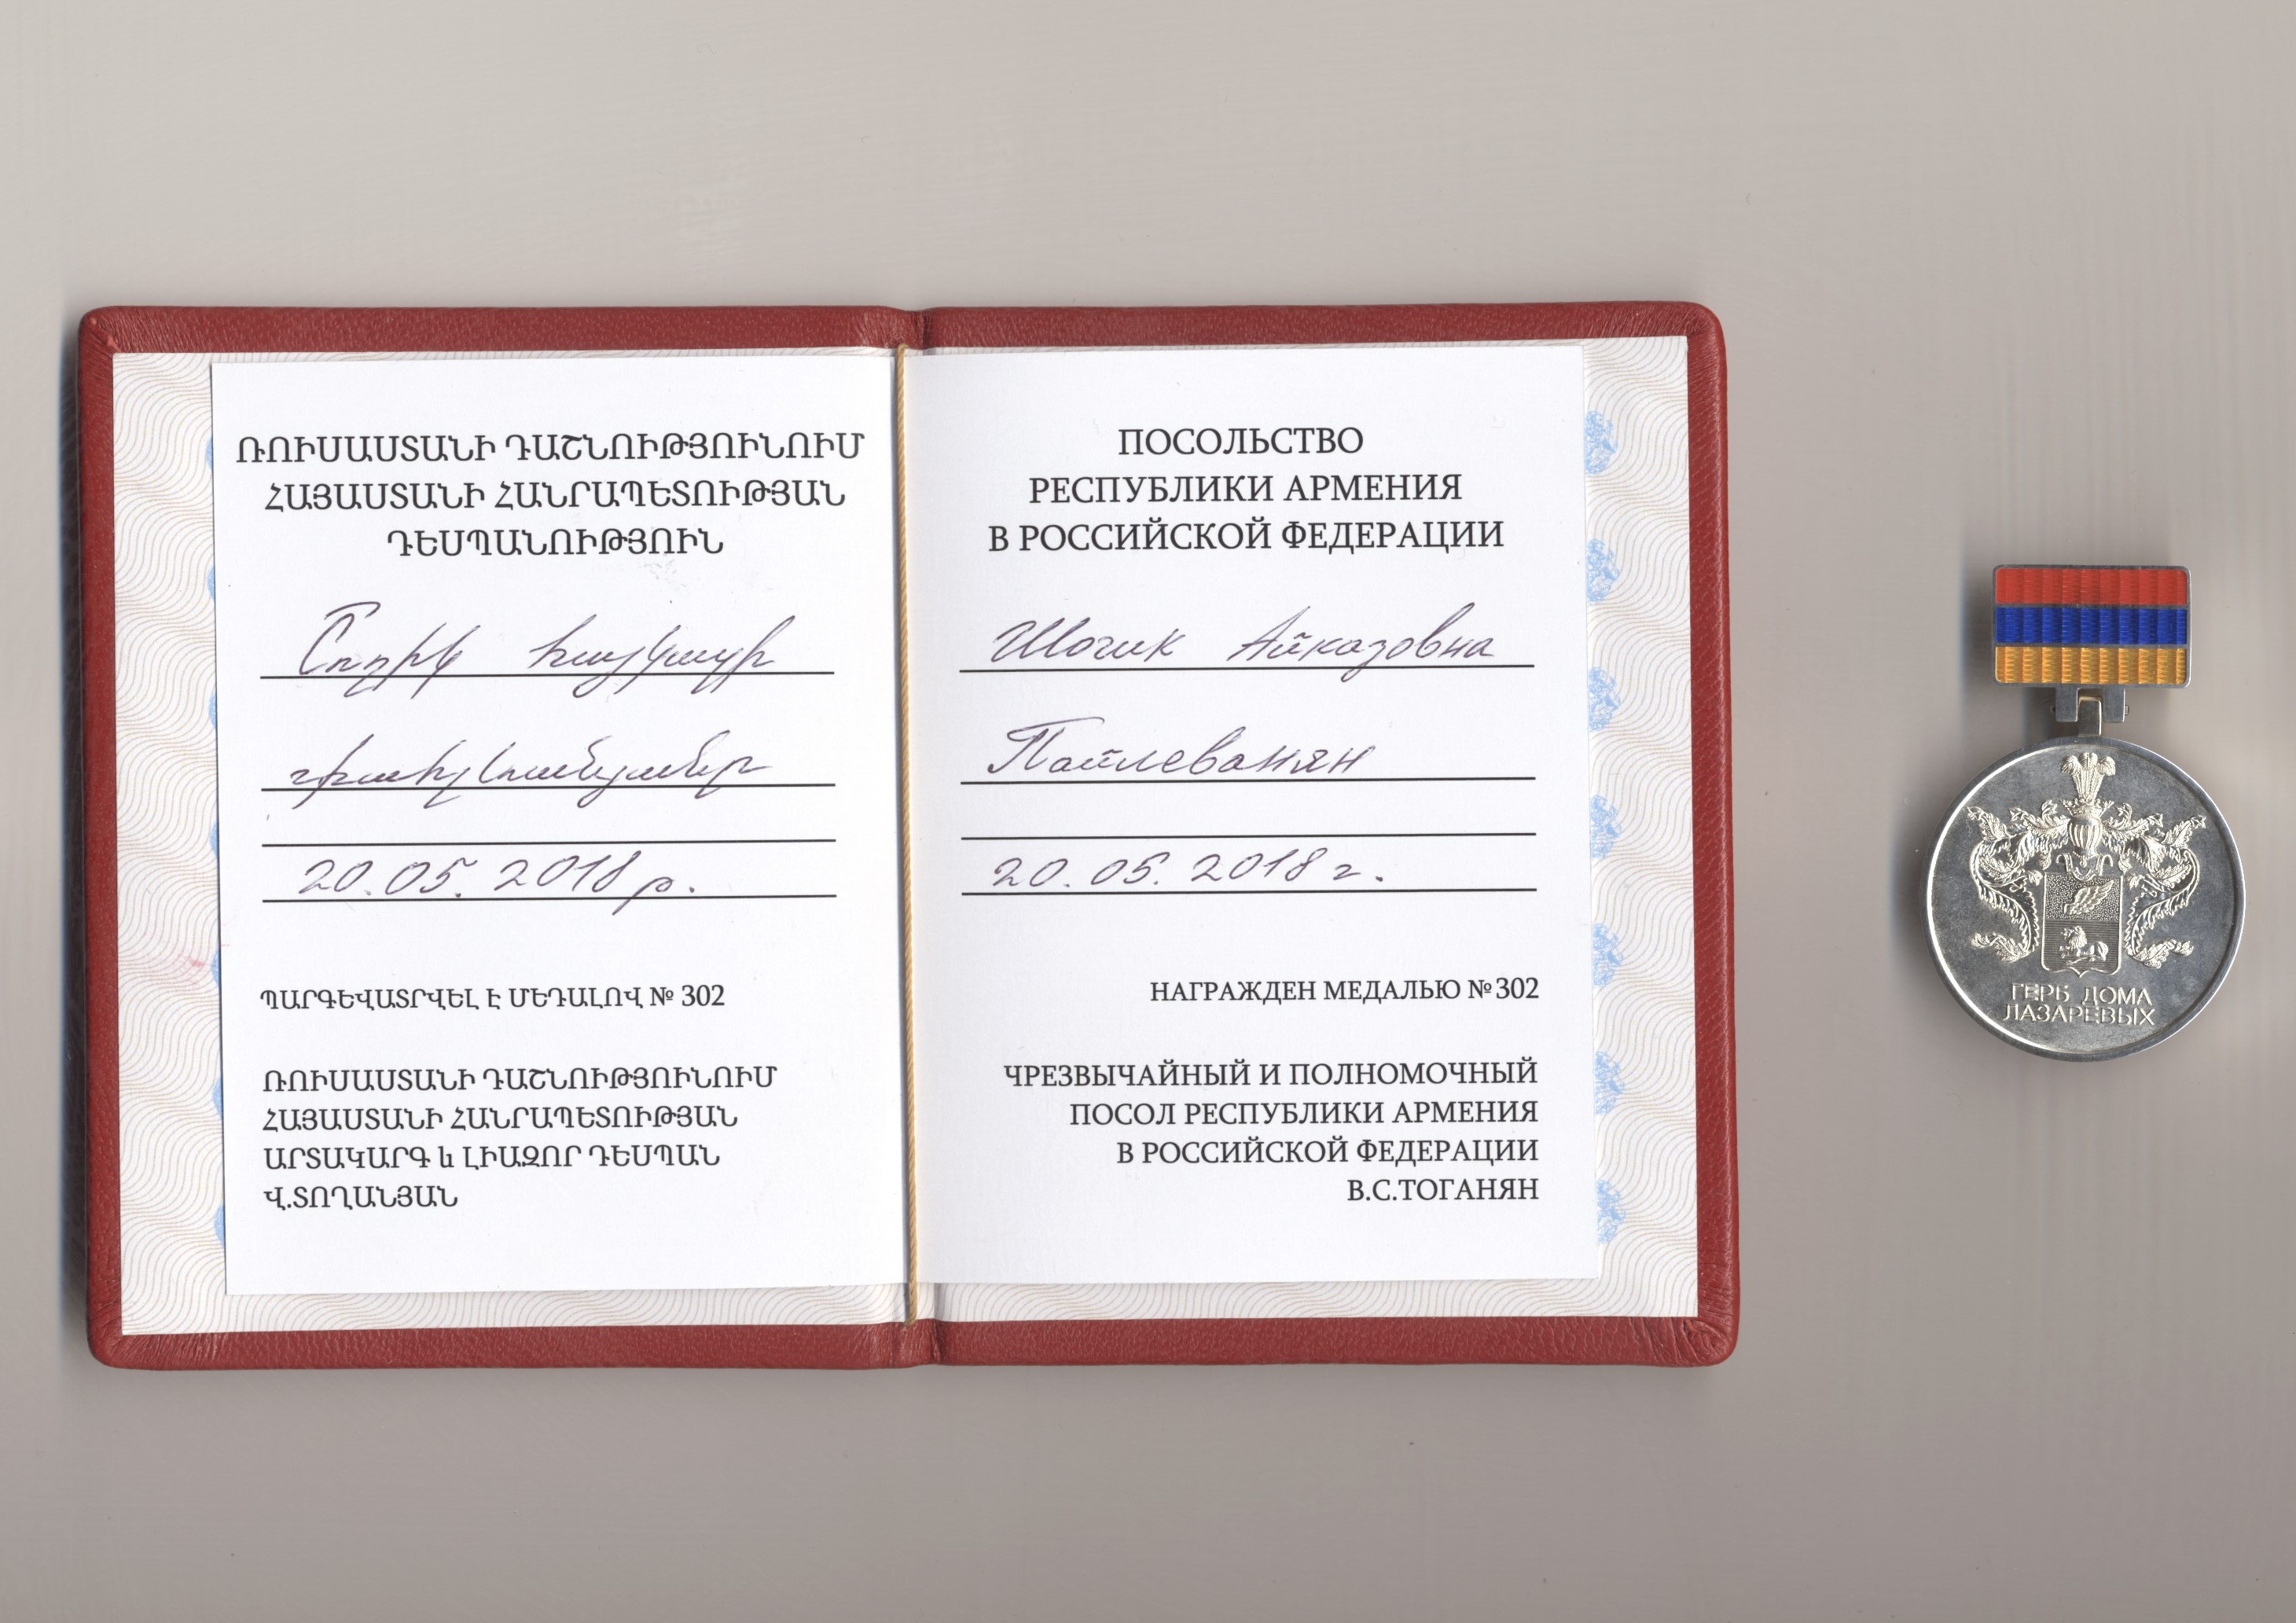 ՌՈՒՍԱՍՏԱՆԻ ԴԱՇՆՈՒԹՅՈՒՆՈՒՄ
ՀԱՅԱՍՏԱՆԻ ՀԱՆՐԱՊԵՏՈՒԹՅԱՆ
ԴԵՍՊԱՆՈՒԹՅՈՒՆ
Շողիկ
20.05.2018թ.
ՊԱՐԳԵՎԱՏՐՎԵԼ Է ՄԵԴԱԼՈՎ № 302
ՌՈՒՍԱՍՏԱՆԻ ԴԱՇՆՈՒԹՅՈՒՆՈՒՄ
ՀԱՅԱՍՏԱՆԻ ՀԱՆՐԱՊԵՏՈՒԹՅԱՆ
ԱՐՏԱԿԱՐԳ և ԼԻԱԶՈՐ ԴԵՍՊԱՆ
Վ.ՏՈՂԱՆՅԱՆ
ПОСОЛЬСТВО
РЕСПУБЛИКИ АРМЕНИЯ
В РОССИЙСКОЙ ФЕДЕРАЦИИ
Шогик Айказовна
Пайлеванян
20.05.2018 г.
НАГРАЖДЕН МЕДАЛЬЮ №302
ЧРЕЗВЫЧАЙНЫЙ И ПОЛНОМОЧНЫЙ
ПОСОЛ РЕСПУБЛИКИ АРМЕНИЯ
В РОССИЙСКОЙ ФЕДЕРАЦИИ
В.С.ТОГАНЯН
ГЕРБ ДОМА
ЛАЗАРЕВЫХ